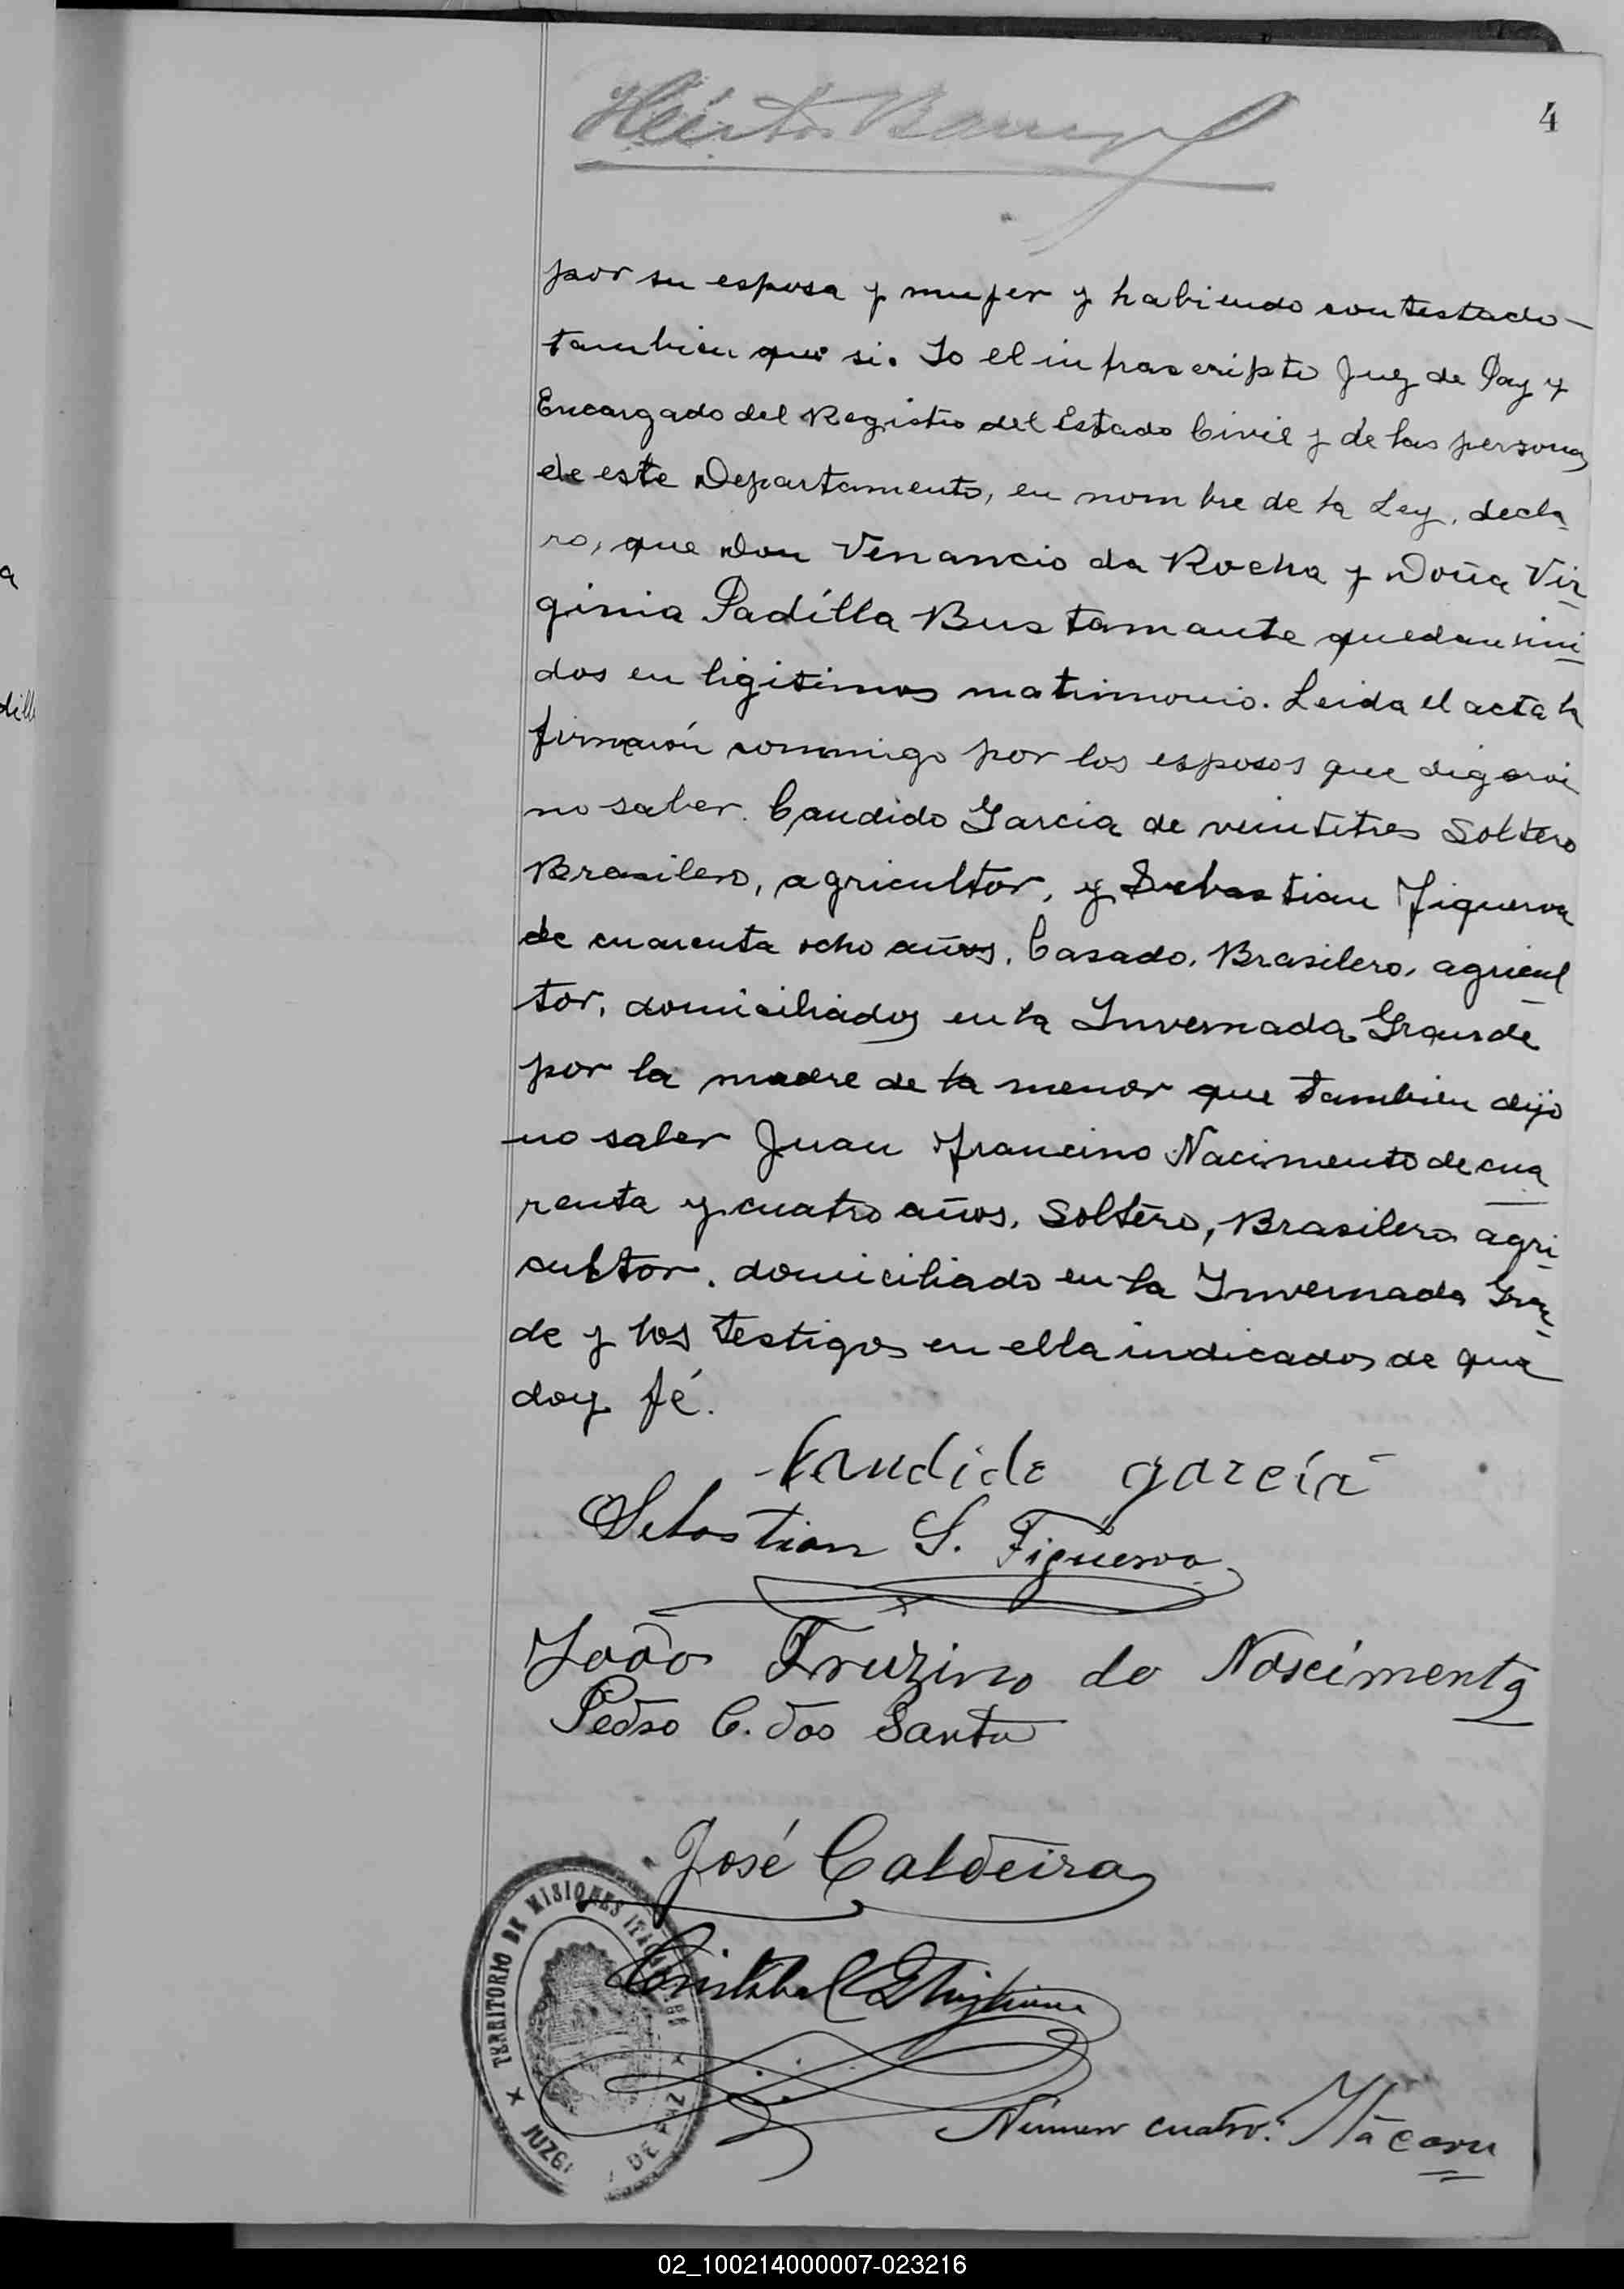 4
por su esposa y mujer y habiendo contestado –
tambien que si. Yo el infrascripto Juez de Paz y
Encargado del Registro del Estado Civil y de las personas
de este Departamento, en nombre de la Ley, decla
ro, que Don Venancio da Rocha y Doña Vir
ginia Padilla Bustamante quedan uni
dos en ligitimos matrimonio. Leida el acta la
firmarón conmigo por los esposos que digeron
no saber. Candido Garcia de veintitres Soltero
Brasilero, agricultor, y Sebastian Figueroa
de cuarenta ocho años, Casado, Brasilero, agricul
tor, domiciliados en la Invernada Grande
por la madre de la menor que tambien dijo
no saber Juan Francino Nacimento de cua
renta y cuatro años, Soltero, Brasilero agri
cultor, domiciliado en la Invernada Gran
de y los testigos en ella indicados de que
doy fé.
Candido garcía
Sebastian S. Figueroa
João Fruzino do Nascimento
Pedro C. dos Santos
José Caldeira
TERRITORIO DE MISIONES
Cristobal
JUZG DE PAZ
Número cuatro:
a
dill
02_100214000007-023216